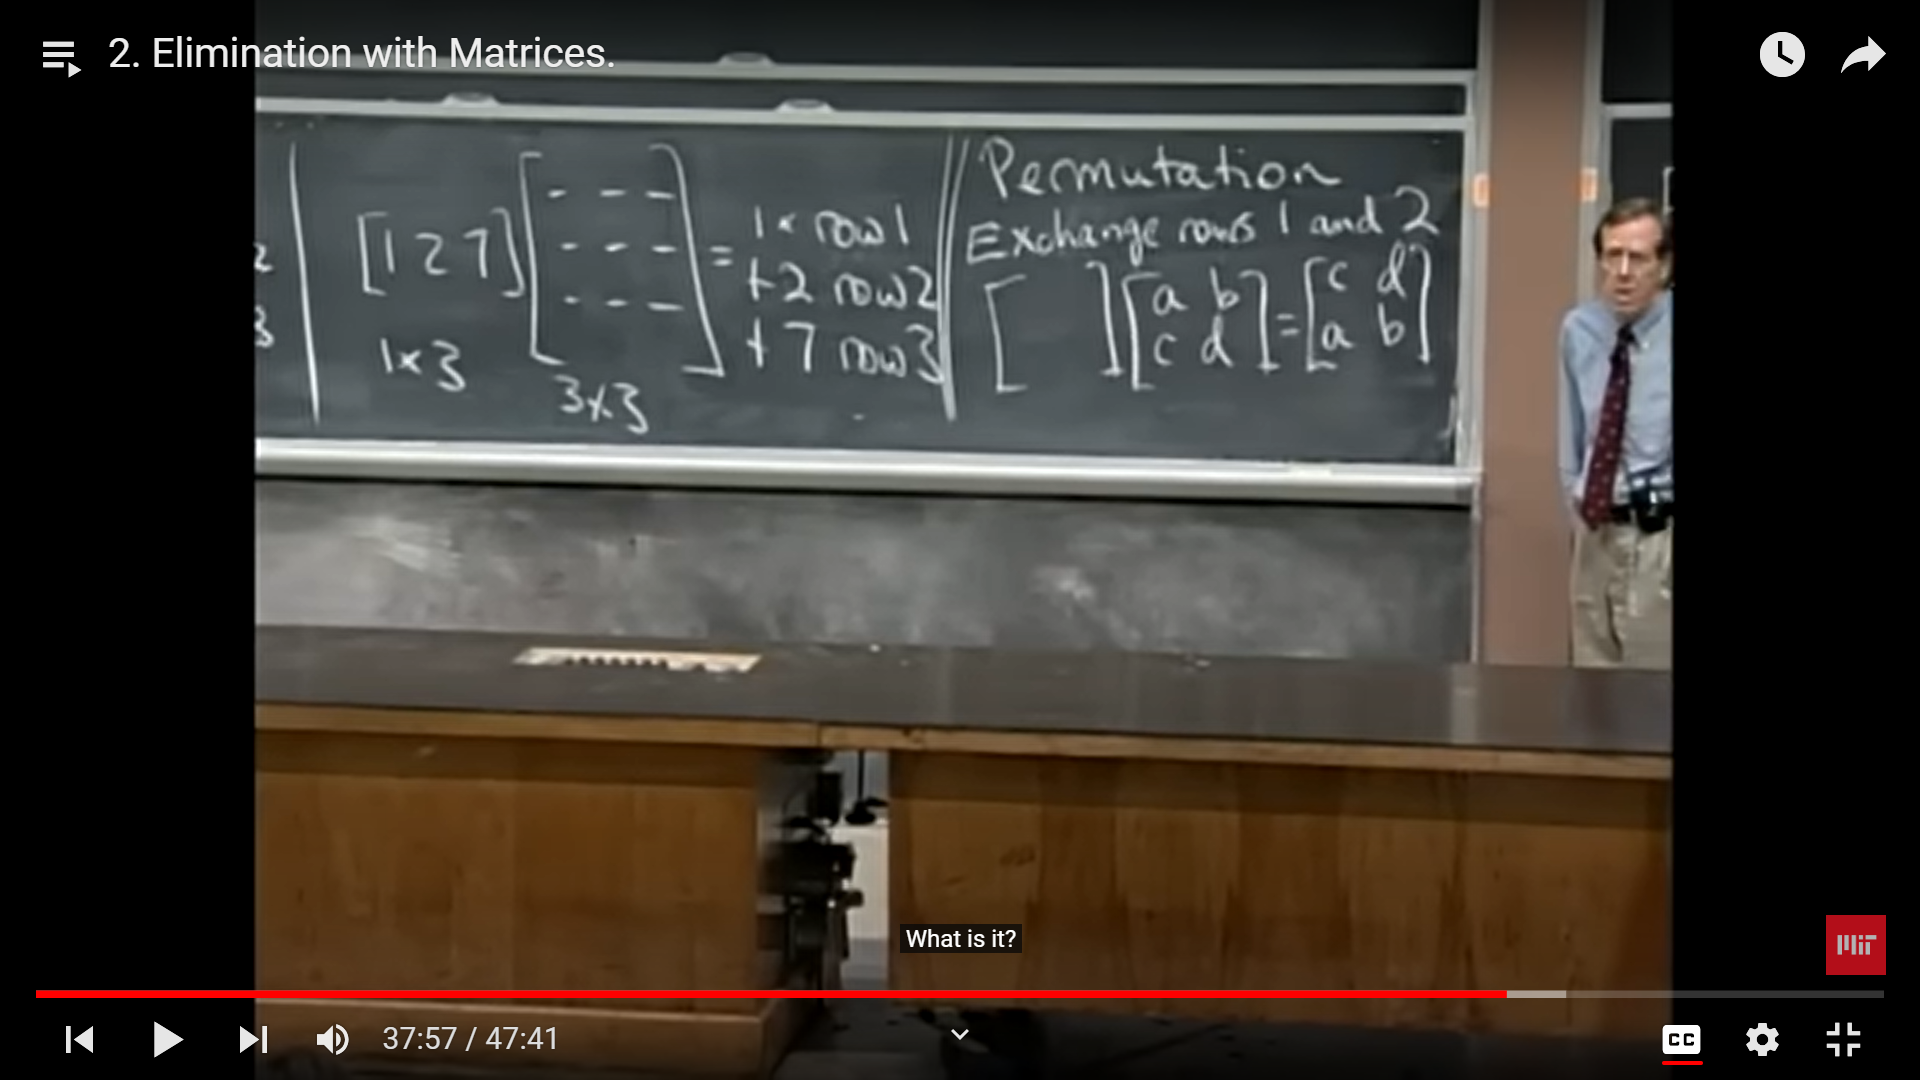 2. Elimination with Matrices.
2
3
[1 2 7] [- - - - - - - - -] = 1 × row 1
+2 row 2
+7 row 3
1×3
3×3
Permutation
Exchange rows 1 and 2
[ ] [a b = [c d
c d] a b]
What is it?
MIT
37:57 / 47:41
CC